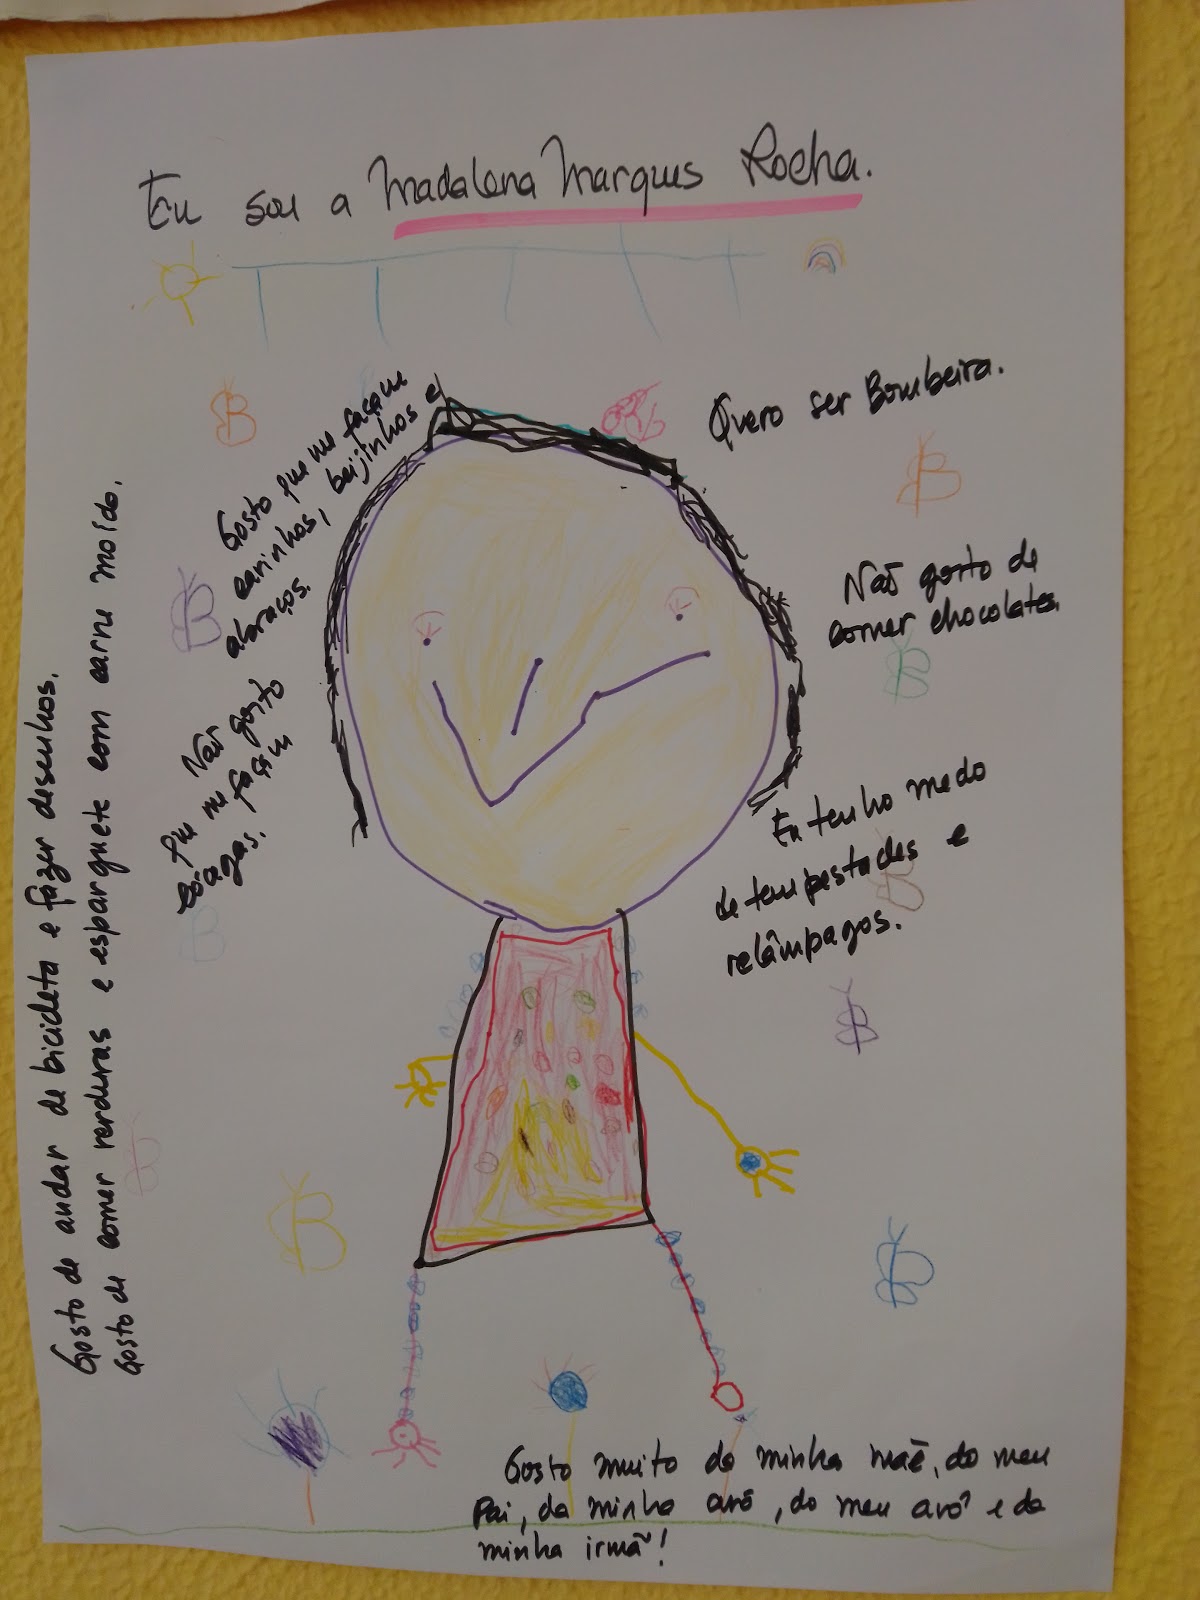 Eu sou a Madalena Marques Rocha.
Gosto que me façam
carinhos, beijinhos e
abraços.
Não gosto
que me façam
cócegas.
Quero ser Bombeira.
Não gosto de
comer chocolates.
Eu tenho medo
de tempestades e
relâmpagos.
Gosto de andar de bicicleta e fazer desenhos.
Gosto de comer verduras e esparguete com carne moída.
Gosto muito da minha mãe, do meu
Pai, da minha avó, do meu avô e da
minha irmã!